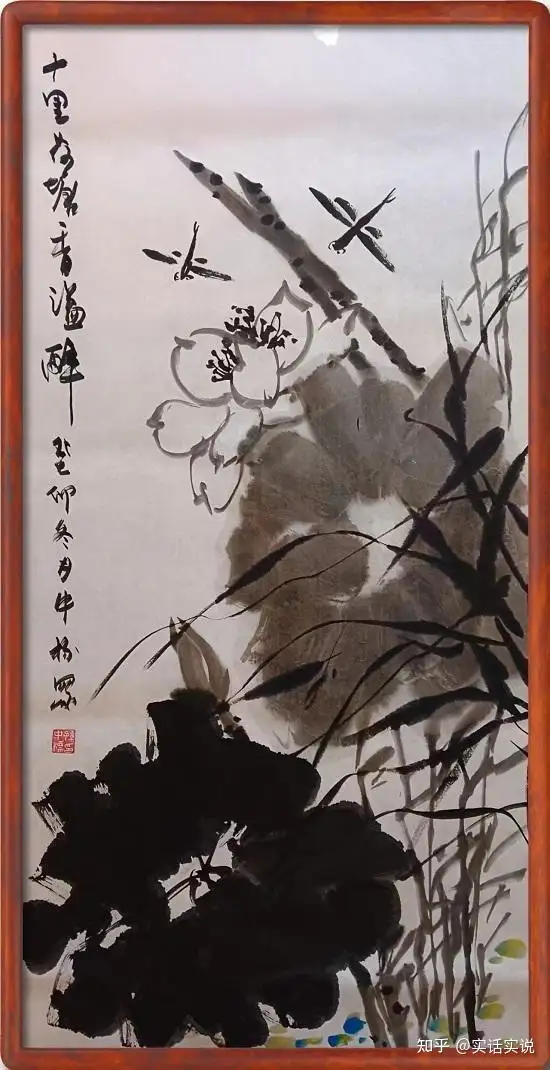 十里荷塘香溢醉
癸巳仲冬月中
知乎 @实话实说